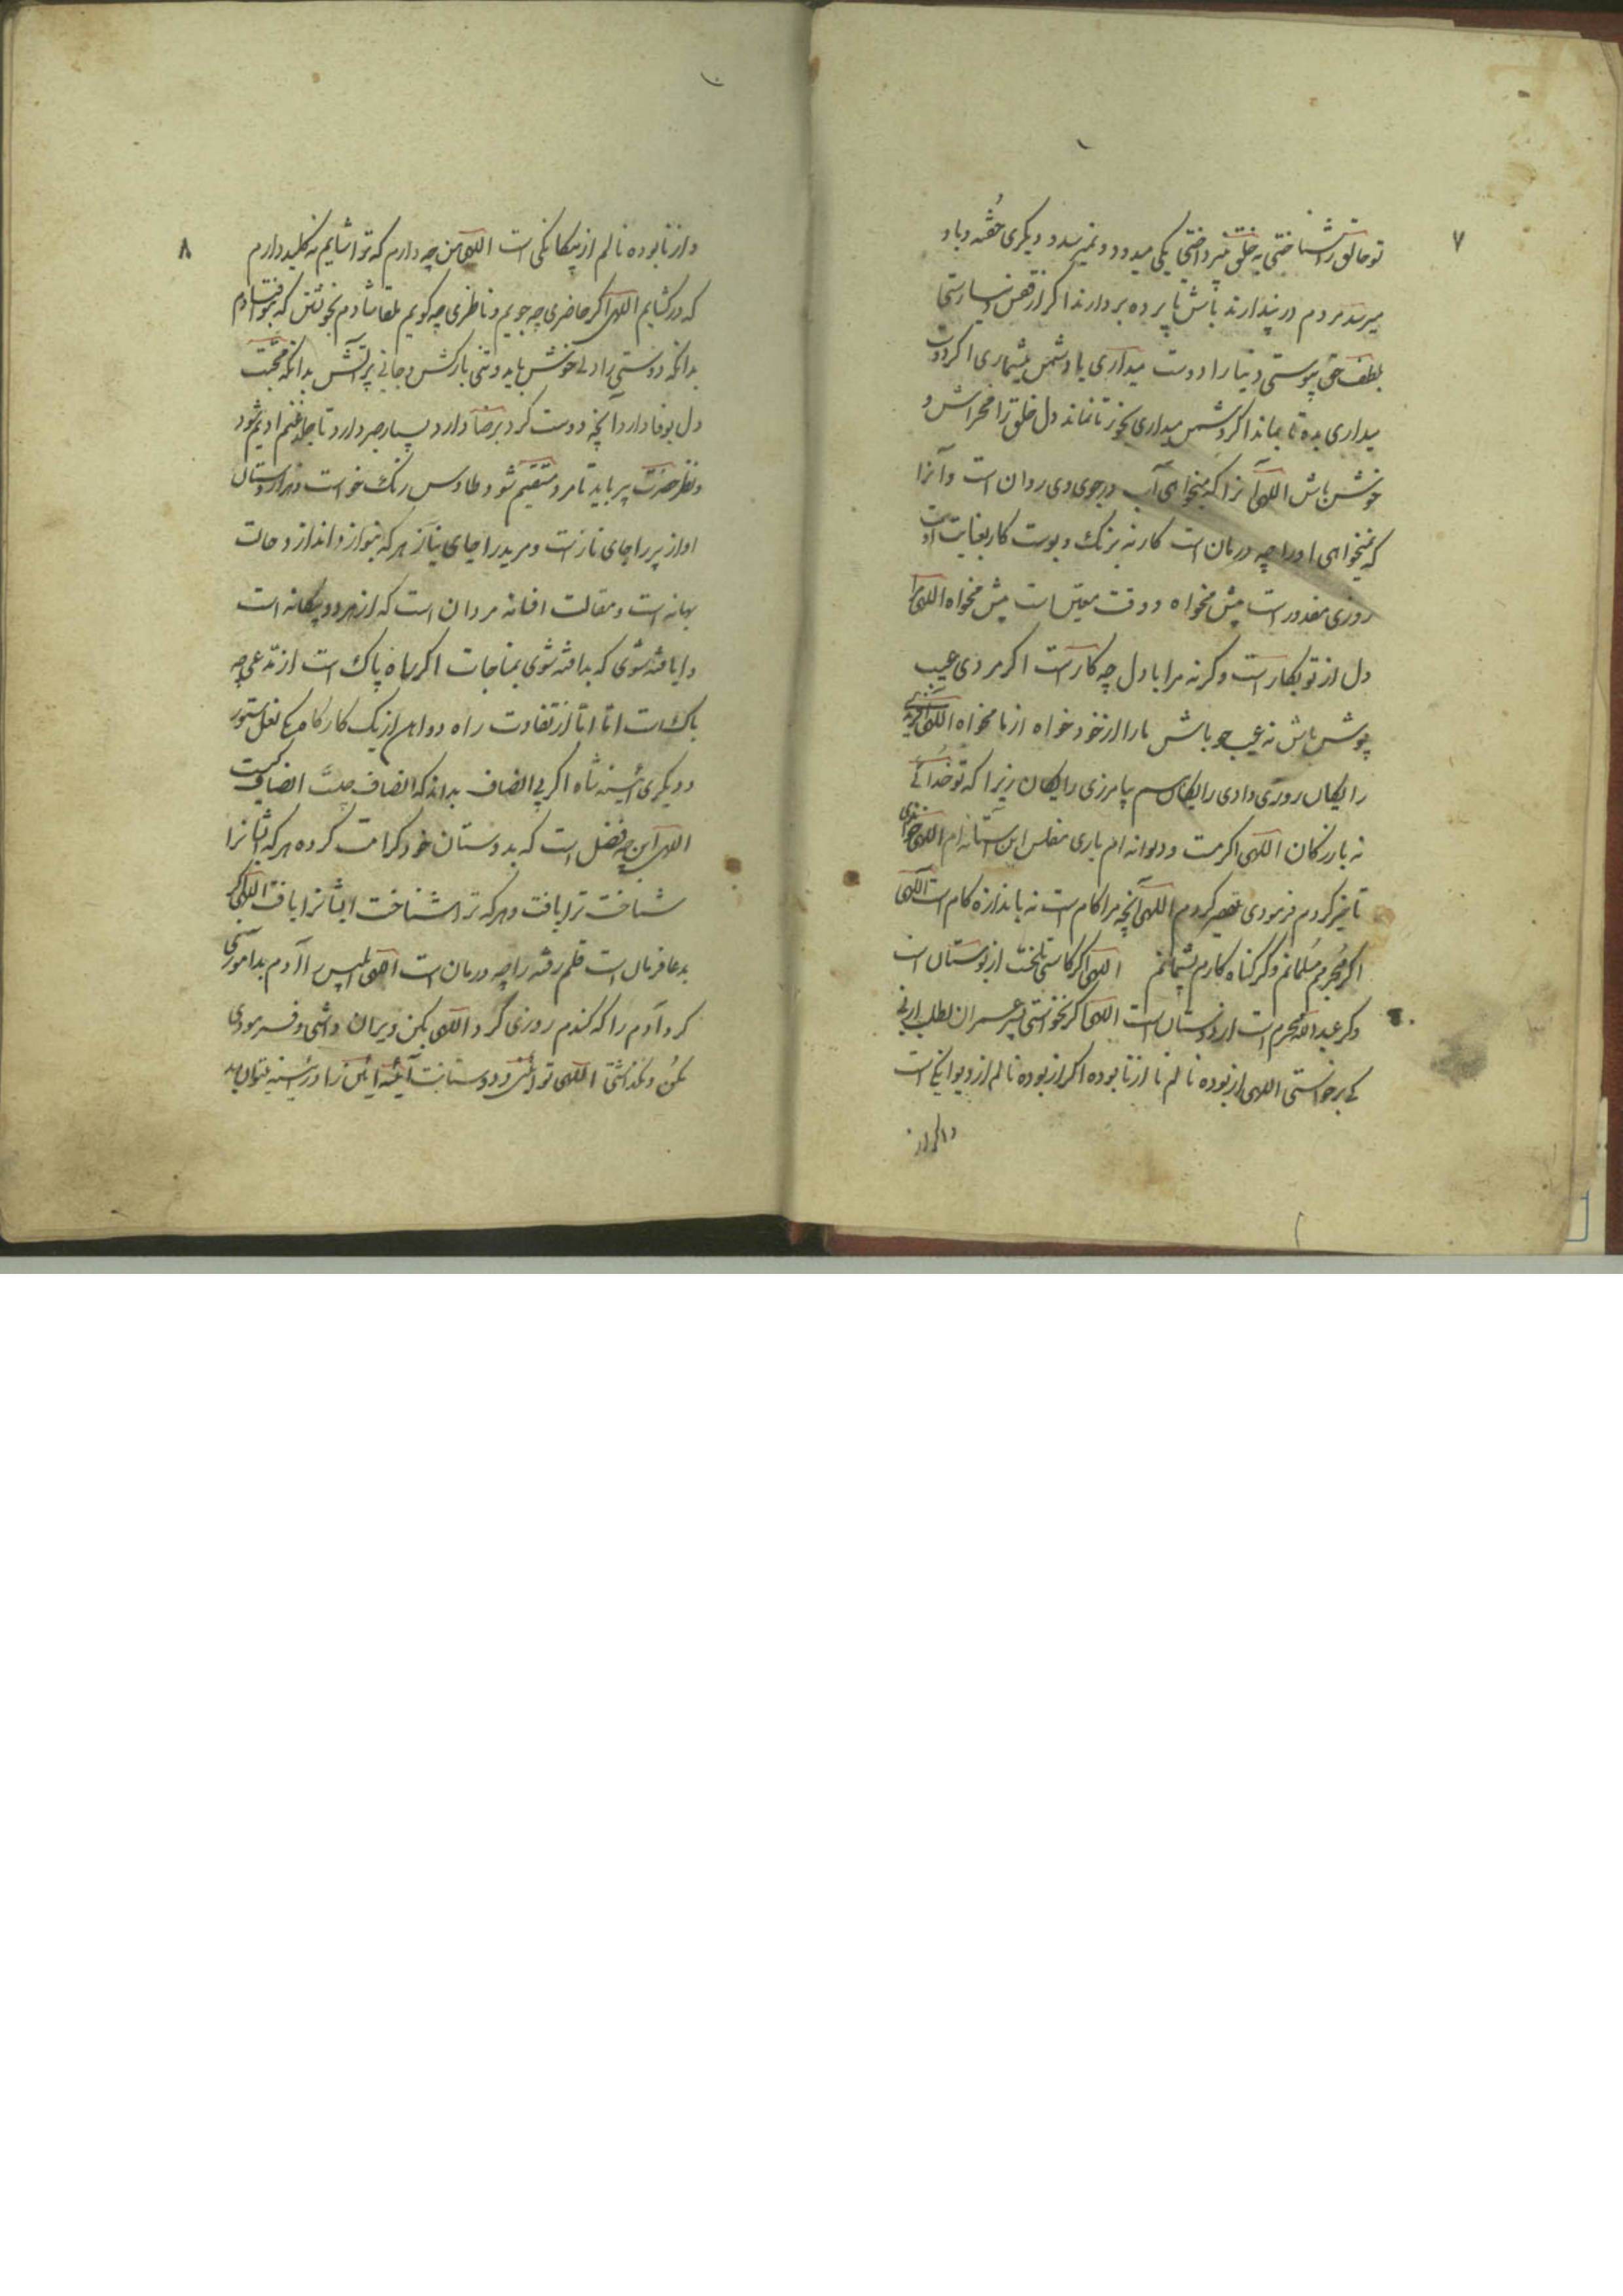 ۷
تو خالق را شناختی به خلق نپرداختی یکی میدود و نمیرسد و دیگری خفته و باو
میرسد مردم در پندارند باش تا پرده بردارند اگر از نفس
بلطف حق پیوستی دنیا را دوست میداری یا دشمن میشماری اگر دوست
میداری بده تا بماند اگر دشمن میداری بخور تا نماند دل خلق را مخراش و
خوش باش اللهی آنرا که میخواهی آب در جوی وی روان است و آنرا
که نمیخواهی او را چه درمان است کار نه برنک و بوست کار بعنایت اوست
روزی مقدور است بیش مخواه و وقت معین است پیش مخواه اللهی مرا
دل از تو بکار است وکرنه مرا با دل چه کار است اکر مردی عیب
پوش باش نه عیب جو باش ما را از خود خواه از ما مخواه اللهی آفریدی
رایکان روزی دادی رایکان بیامرزی رایکان زیرا که تو خدائی
نه بازرکان اللهی اکر مست و دیوانه ام باری مفلس این آستانه ام اللهی خواندی
تاخیر کردم فرمودی تقصیر کردم اللهی آنچه مرا کام است نه باندازه کام است اللهی
اکر مجرمم مسلمانم وکر کناه کارم پشیمانم اللهی اکر کاسنی تلخست از بوستان است
وکر عبدالله مجرم است از دوستان است اللهی اکر نخواستی پسر عمران بطلب ارنی
کی برخواستی اللهی از بوده نالم یا از نابوده اکر از بوده نالم از دیوانکی است
و اکر از
۸
و از نابوده نالم از بیکانکی است اللهی من چه دارم که تو را شایم نه کلید دارم
که در کشایم اللهی اکر حاضری چه جویم و ناظری چه کویم
بدانکه دوستی را دلی خوش باید و تنی بارکش و جانی پرآتش بدانکه محبت
دل بوفا دارد آنچه دوست کرد برضا دارد بسیار صبر دارد تا
و نظر حضرت پیر باید تا مرد مستقیم شود و طاوس رنک خواست و هزاردستان
اواز پیر را جای ناز است و مرید را جای نیاز هر که
بهانه است و مقالت افسانه مردان است که از هر دو بیکانه است
شوی بمناجات اکر ماه پاک است از مدعی چه
باک است اما اما از تفاوت راه دو اهن از یک کارکاه یکی نعل ستور
و دیکری آئینه شاه اکر بی انصاف بداند که انصاف چیست انصاف کیست
اللهی این چه فضل است که بدوستان خود کرامت کرده هر که ایشانرا
شناخت ترا یافت و هر که ترا شناخت ایشانرا یافت اللهی اکر
بدعا فرمان است قلم رفته را چه درمان است اللهی ابلیس آدم بدآموزی
کرد آدم را که کندم روزی کرد اللهی بکن ویران داشتی و فرمودی
مکن و نکذاشتی اللهی تو ایمن و دوستانت آئینه ایمن را در آئینه بتوان دید